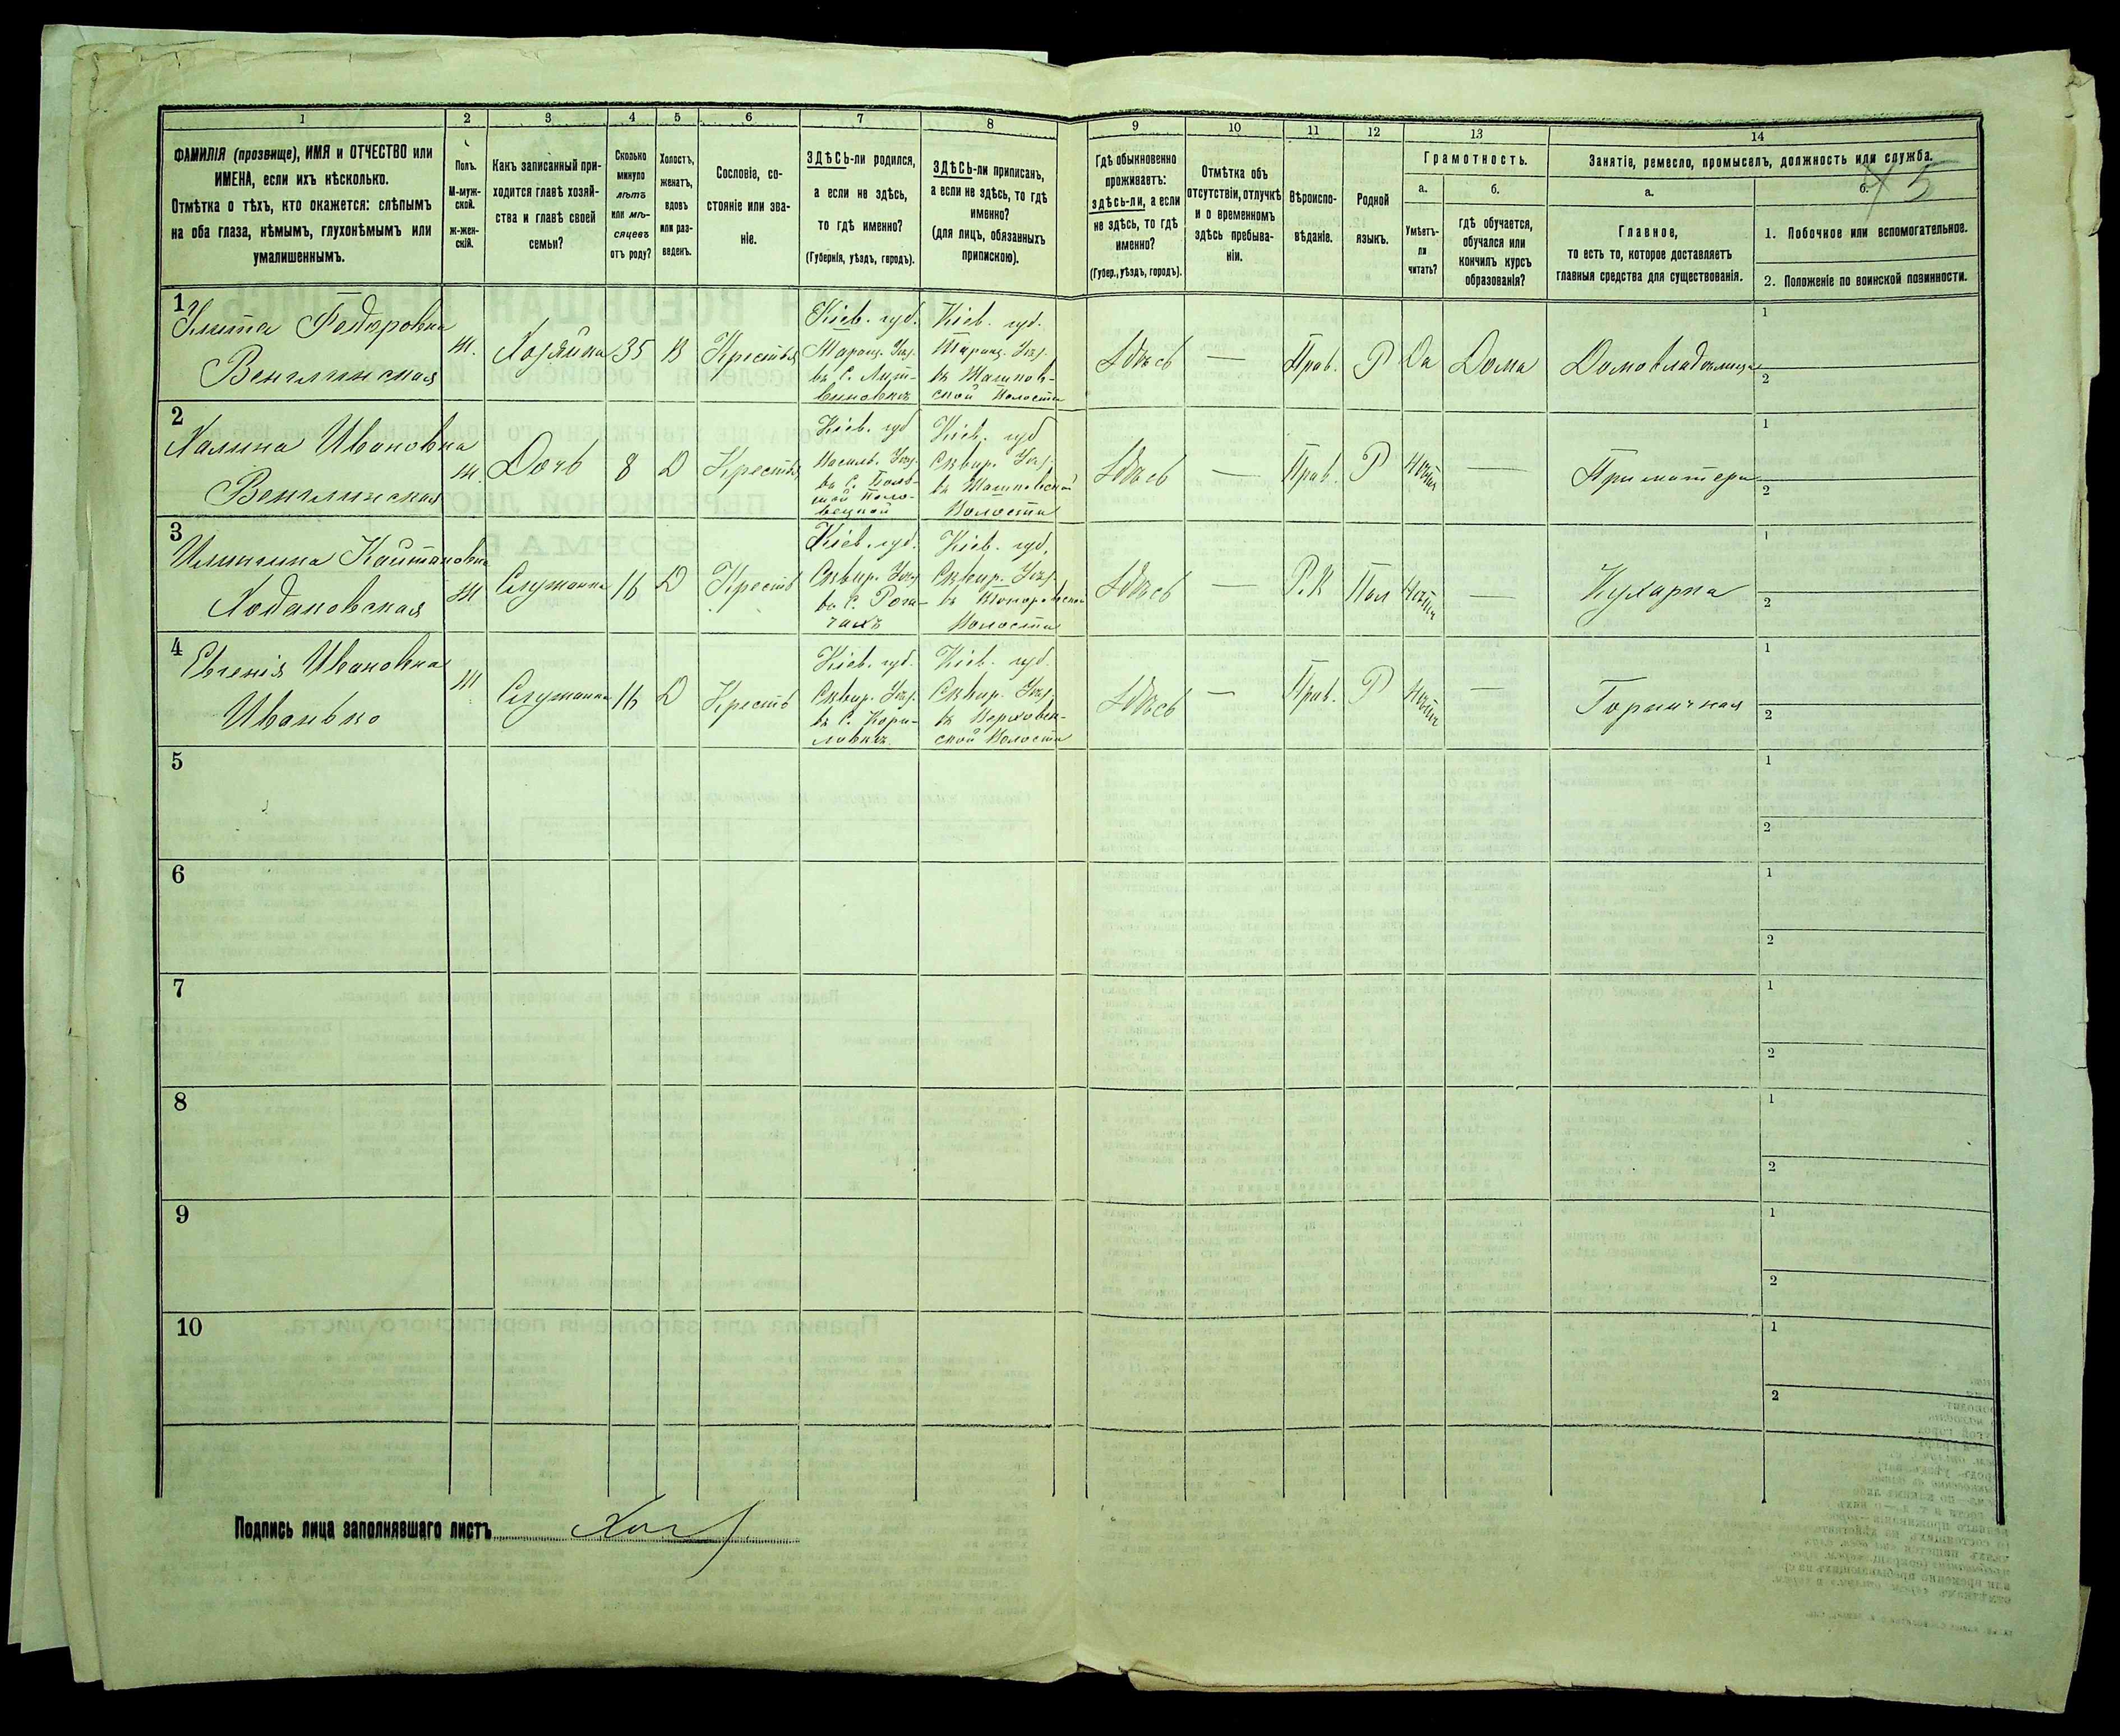 1 2 3 4 5 6 7 8 9 10 11 12 13 14
ФАМИЛІЯ (прозвище), ИМЯ и ОТЧЕСТВО или
ИМЕНА, если ихъ нѣсколько.
Отмѣтка о тѣхъ, кто окажется: слѣпымъ
на оба глаза, нѣмымъ, глухонѣмымъ или
умалишеннымъ.
Полъ.
М-муж-
ской.
ж-жен-
скій.
Какъ записанный при-
ходится главѣ хозяй-
ства и главѣ своей
семьи?
Сколько
минуло
лѣтъ
или мѣ-
сяцевъ
отъ роду?
Холостъ,
женатъ,
вдовъ
или раз-
веденъ.
Сословіе, со-
стояніе или зва-
ніе.
ЗДѢСЬ-ли родился,
а если не здѣсь,
то гдѣ именно?
(Губернія, уѣздъ, городъ).
ЗДѢСЬ-ли приписанъ,
а если не здѣсь, то гдѣ
именно?
(для лицъ, обязанныхъ
припискою).
Гдѣ обыкновенно
проживаетъ:
здѣсь-ли, а если
не здѣсь, то гдѣ
именно?
(Губер., уѣздъ, городъ).
Отмѣтка объ
отсутствіи, отлучкѣ
и о временномъ
здѣсь пребыва-
ніи.
Вѣроиспо-
вѣданіе.
Родной
языкъ.
Грамотность.
а.
Умѣетъ-
ли
читать?
б.
гдѣ обучается,
обучался или
кончилъ курсъ
образованія?
Занятіе, ремесло, промыселъ, должность или служба.
а.
Главное,
то есть то, которое доставляетъ
главныя средства для существованія.
б.
1. Побочное или вспомогательное.
2. Положеніе по воинской повинности.
45
1
Улита Федоровна
Венглинская
Ж.
Хозяйка
35
В
Крестья
Кіев. губ.
Таращ. Уѣз.
въ С.
Кіев. губ.
Таращ. Уѣз.
въ
ской Волости
Здѣсь
—
Прав.
Р
Да
Дома
Домовладѣлица
1
2
2
Галина Ивановна
Венглинская
Ж.
Дочь
8
Д
Крестья
Кіев. губ
Васильк. Уѣз.
въ С.
Кіев. губ
Сквир. Уѣз.
въ
Волости
Здѣсь
—
Прав.
Р
Нѣтъ
—
При матери
1
2
3
Ходаковская
Ж
Служанка
16
Д
Крестья
Кіев. губ.
Сквир. Уѣз.
въ С. Рога-
чахъ
Кіев. губ.
Сквир. Уѣз.
въ
Волости
Здѣсь
—
Р.К
Пол
Нѣтъ
—
Кухарка
1
2
4
Евгенія Ивановна
Иванько
Ж
Служанка
16
Д
Крестья
Кіев. губ.
Сквир. Уѣз.
въ С.
Кіев. губ.
Сквир. Уѣз.
въ Верховен-
ской Волости
Здѣсь
—
Прав.
Р
Нѣтъ
—
Горничная
1
2
5
1
2
6
1
2
7
1
2
8
1
2
9
1
2
10
1
2
Подпись лица заполнявшаго листъ